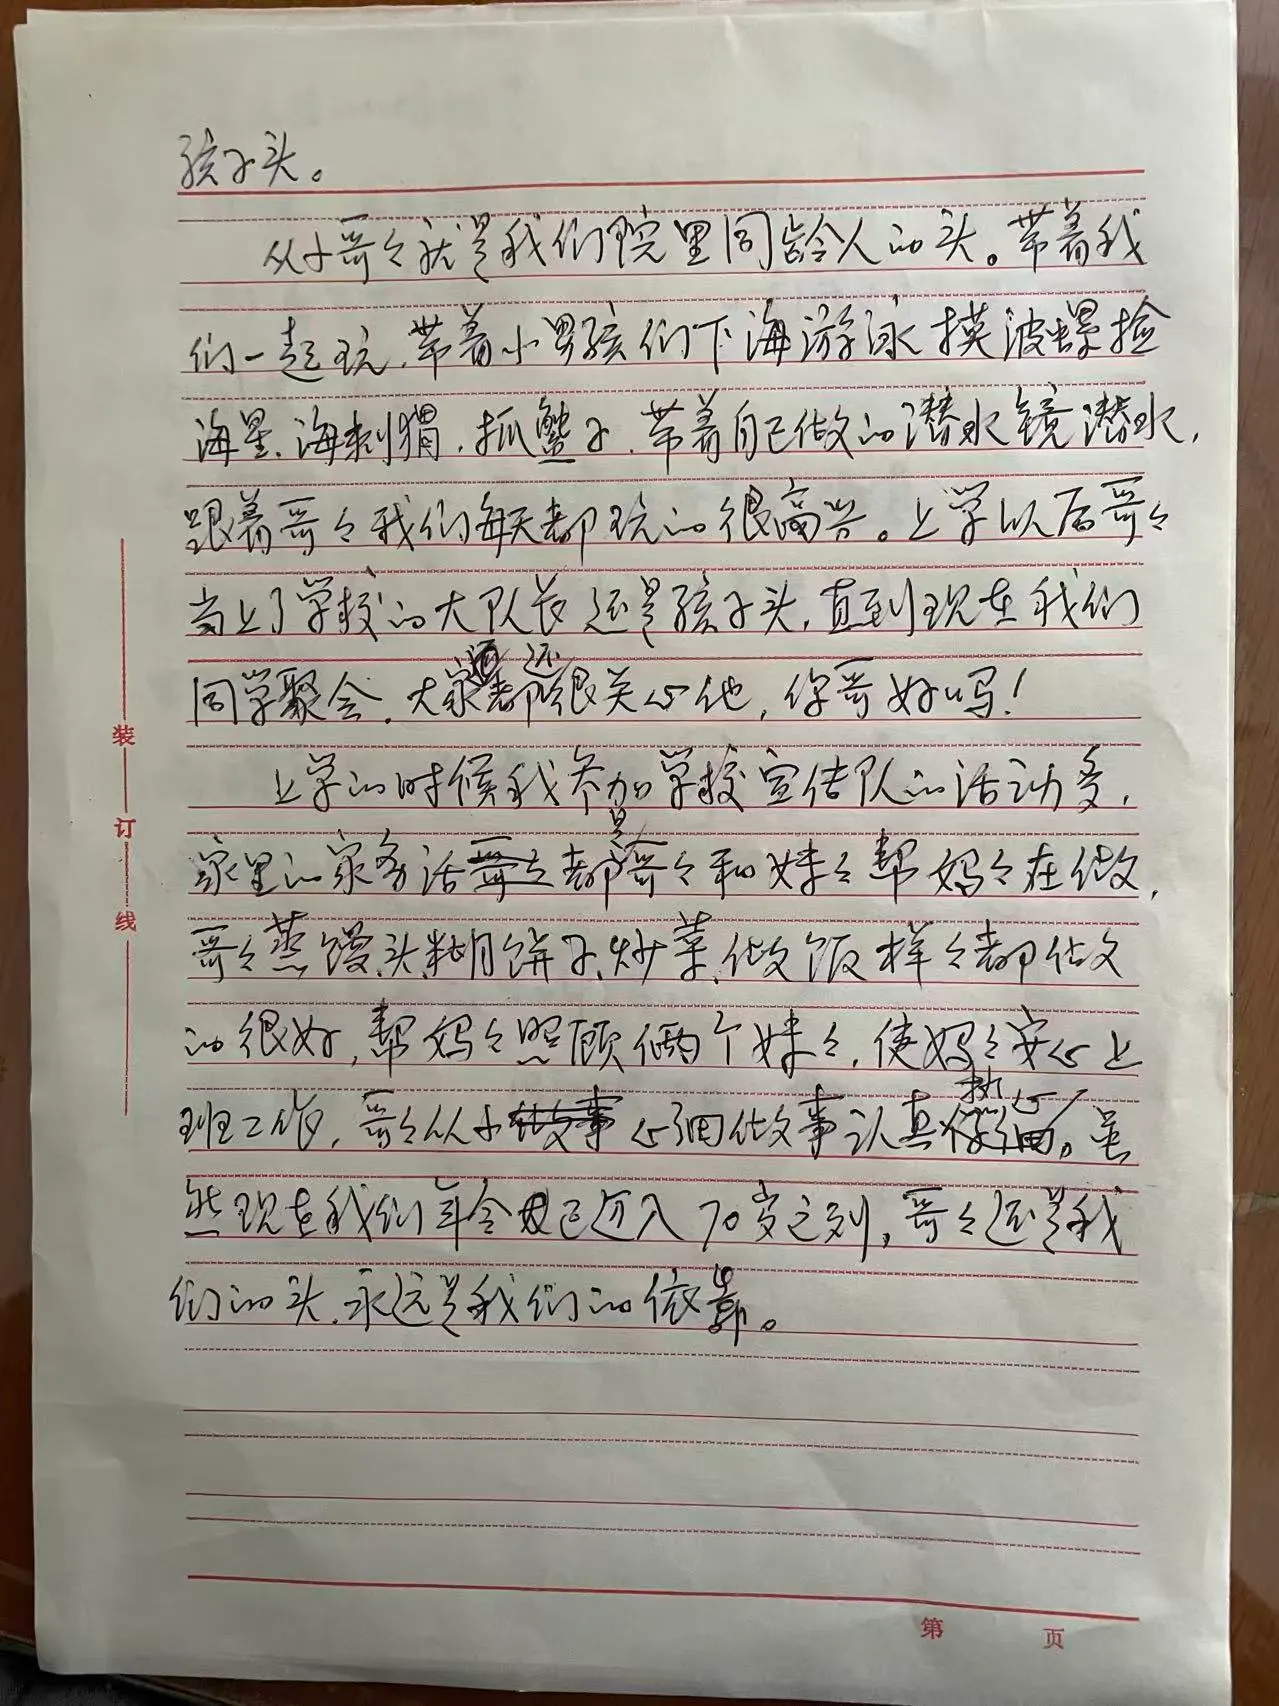 孩子头。
从小哥々就是我们院里同龄人的头。带着我
们一起玩,带着小男孩们下海游泳摸波螺捡
海星、海刺猬,抓蟹子,带着自己做的潜水镜潜水,
跟着哥々我们每天都玩的很高兴。上学以后哥々
当上了学校的大队长还是孩子头,直到现在我们
同学聚会,大家都还很关心他,你哥好吗!
上学的时候我参加学校宣传队的活动多,
家里的家务活都是哥々和妹々帮妈々在做,
哥々蒸馒头糊饼子,炒菜,做饭样々都做
的很好,帮妈々照顾俩个妹々,使妈々安心上
班工作,哥々从小心细做事认真执
。虽
然现在我们年令已迈入70岁之列,哥々还是我
们的头,永远是我们的依靠。
装
订
线
第 页